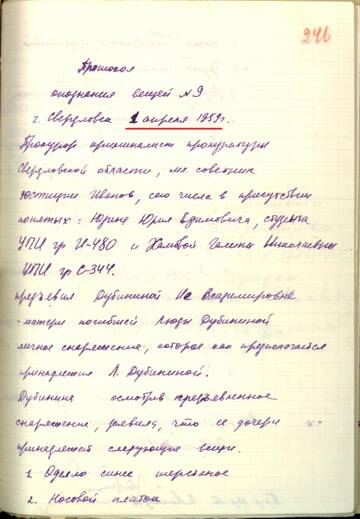 246
Протокол
опознания вещей №9
г. Свердловск 1 апреля 1959г.
Прокурор криминалист прокуратуры
Свердловской области, мл. советник
юстиции Иванов, сего числа в присутствии
понятых: Юрия Ефимовича, студента
УПИ гр И-480 и Галины Николаевны
УПИ гр С-344.
предъявил Дубининой Владимировне
-матери погибшей Люды Дубининой
личное снаряжение, которое как предполагается
принадлежит Л. Дубининой.
Дубинина осмотрев предъявленное
снаряжение, заявила, что ее дочери
принадлежат следующие вещи.
1. Одеяло синее шерстяное
2. Носовой платок